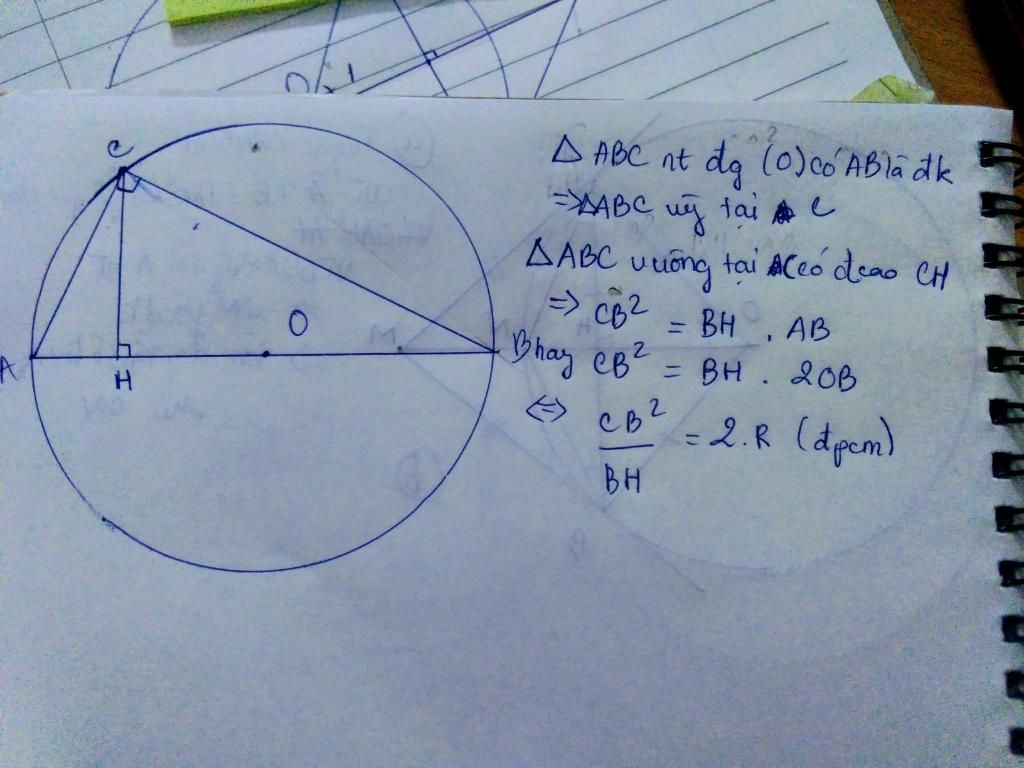 C
A
H
O
B
△ABC nt đg (O) có AB là đk
⇒△ABC vg tại C
△ABC vuông tại C có đcao CH
⇒ CB² = BH . AB
hay CB² = BH . 2OB
⇔ CB²/BH = 2.R (đpcm)